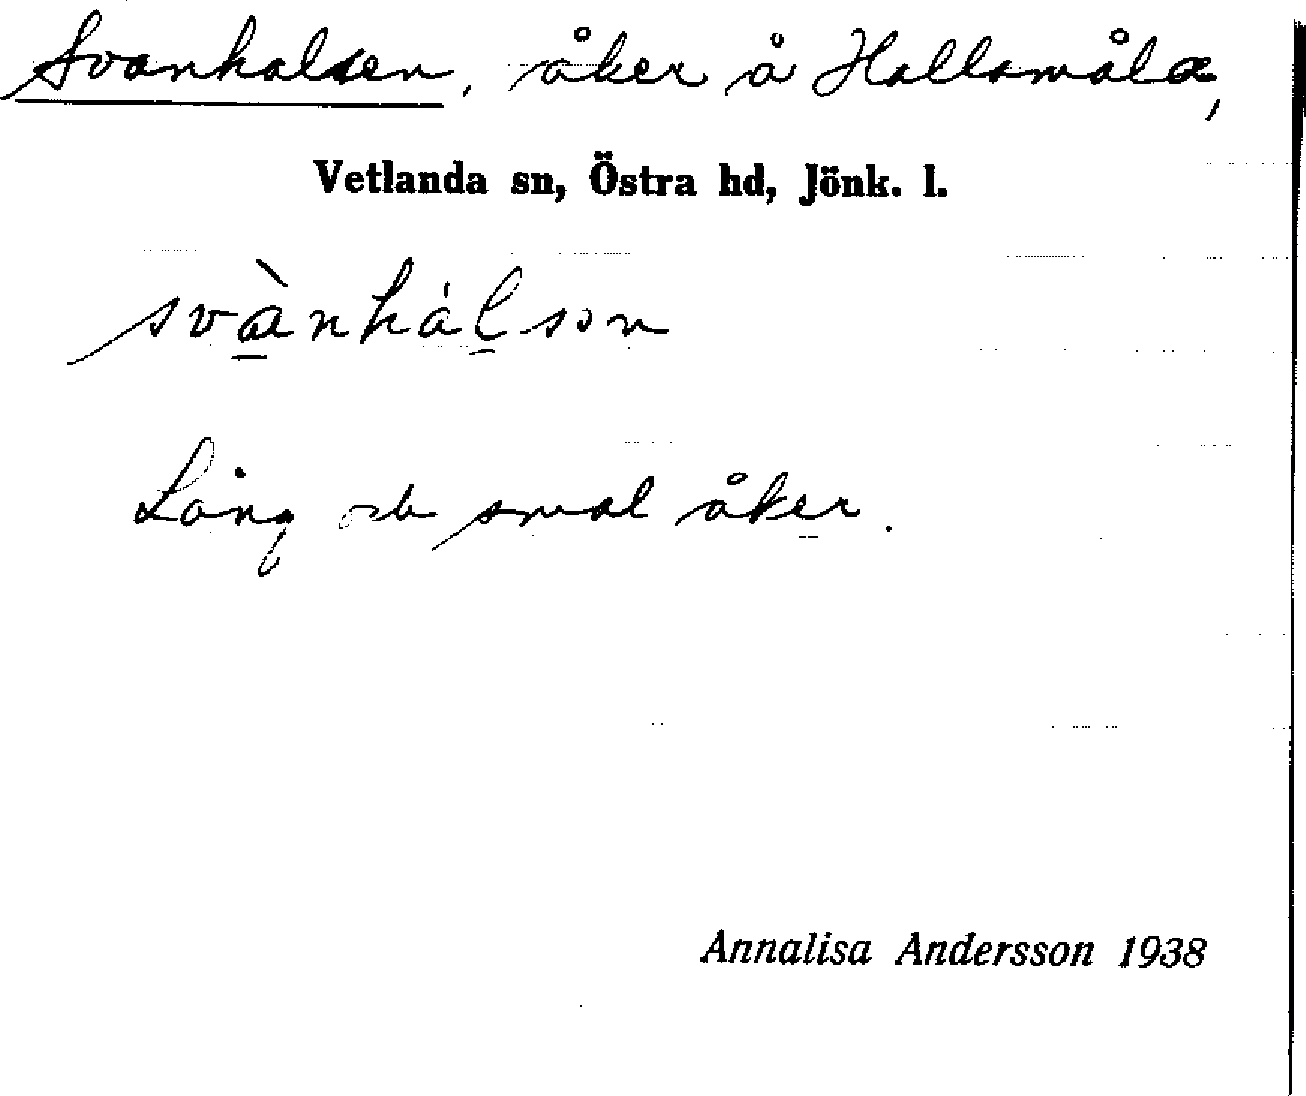 Svanhalsen, åker å Hallsmåla,
Vetlanda sn, Östra hd, Jönk. l.
svànhálson
Lång och smal åker.
Annalisa Andersson 1938